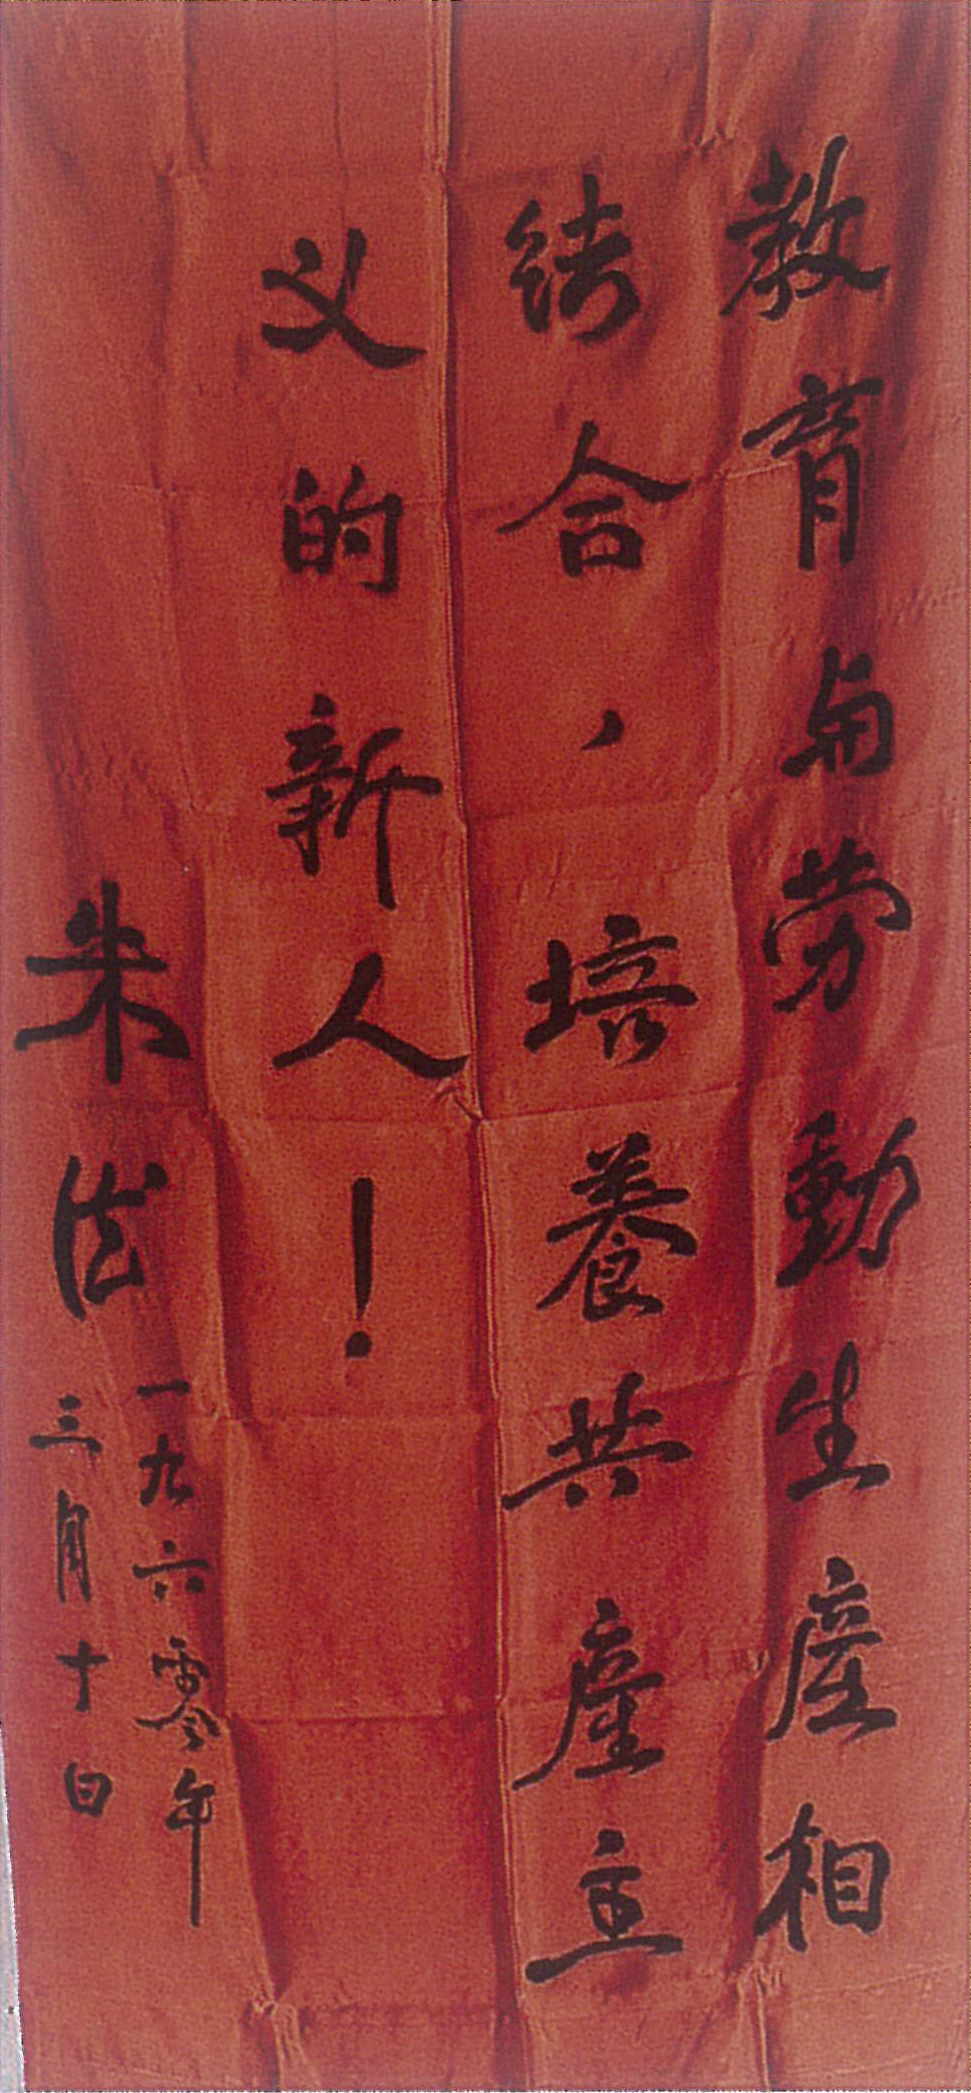 教育與劳動生產相
結合，培養共產主
义的新人！
朱德
一九六零年
三月十日